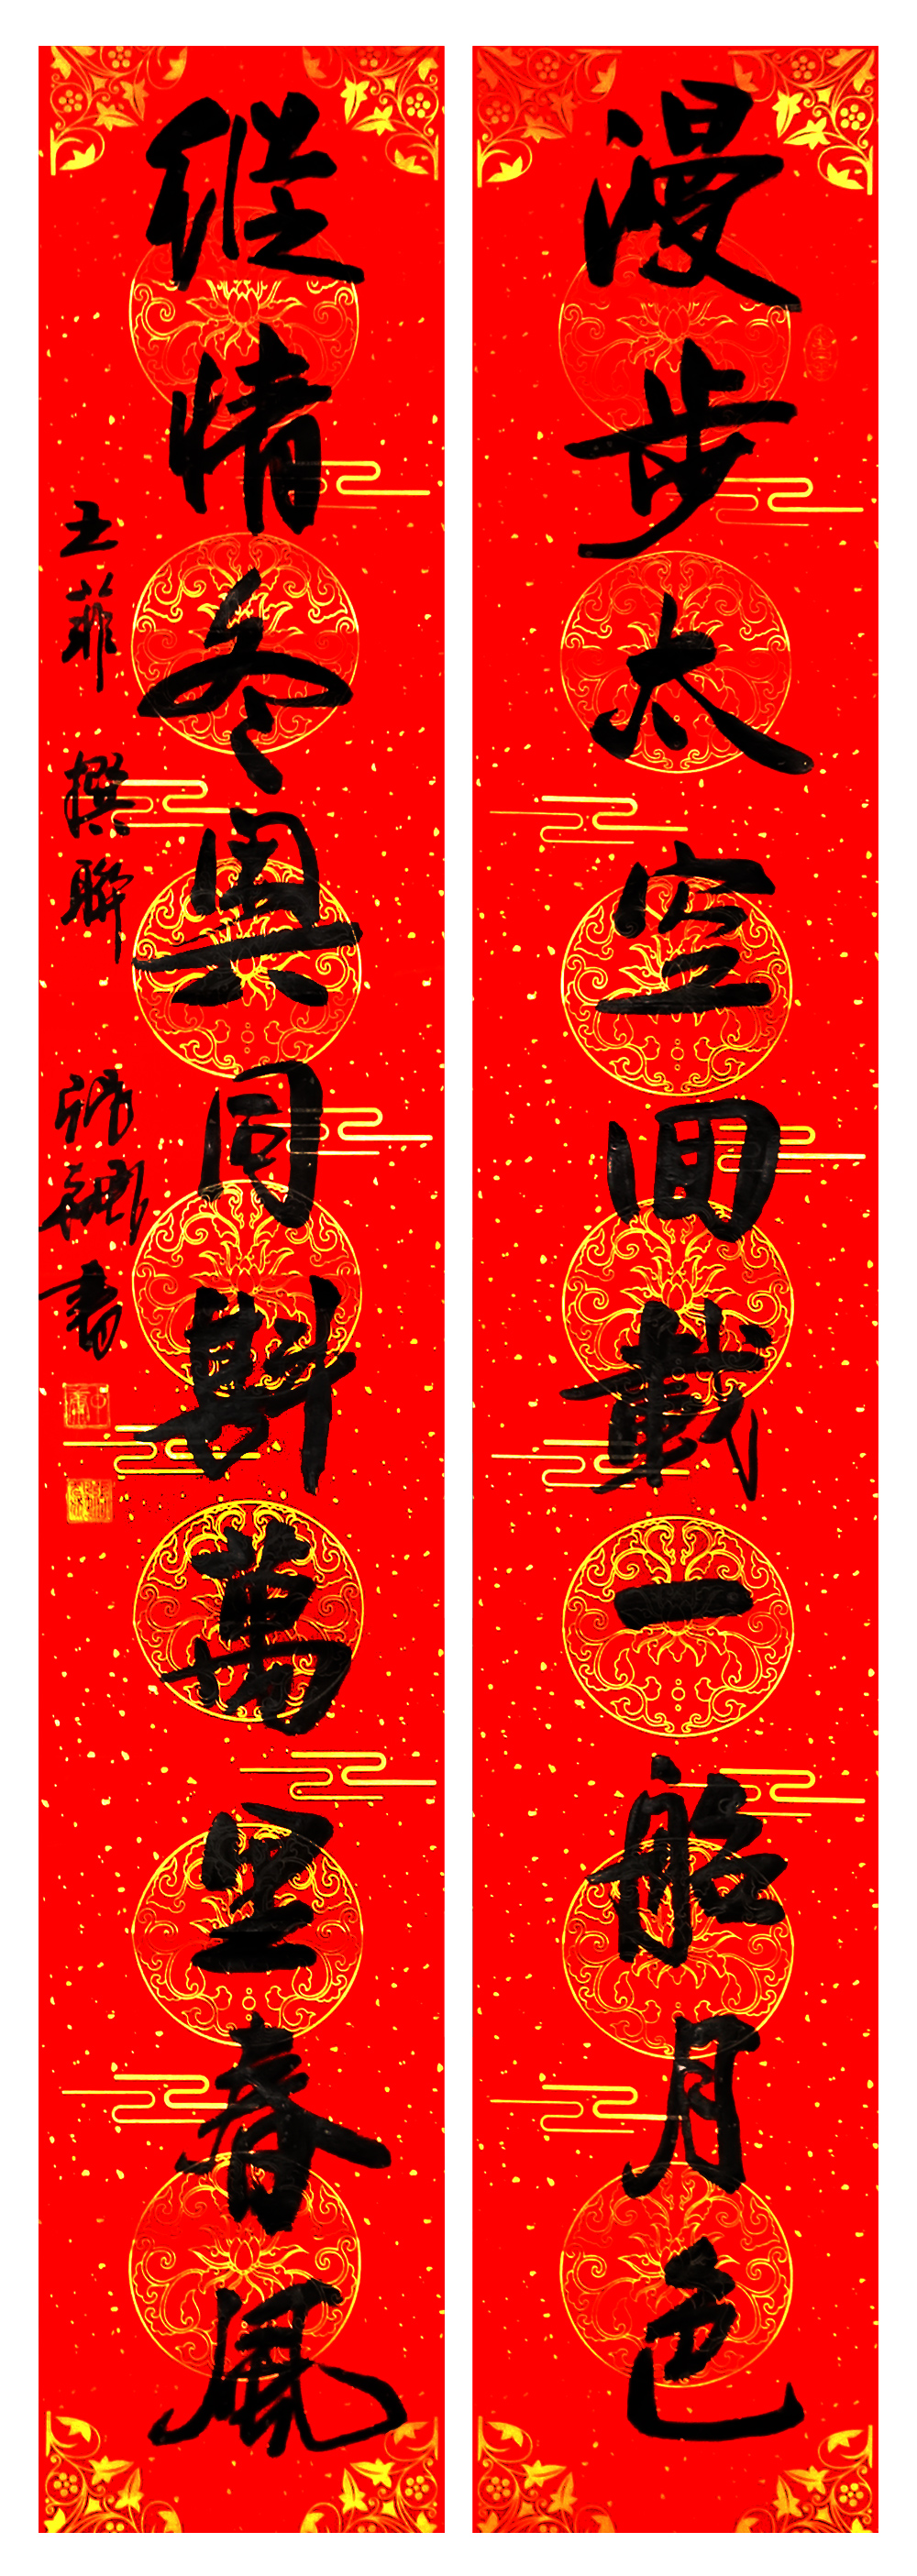 漫步太空回載一船月色
縱情冬奧同斟萬里春風
王菲 撰聯 書